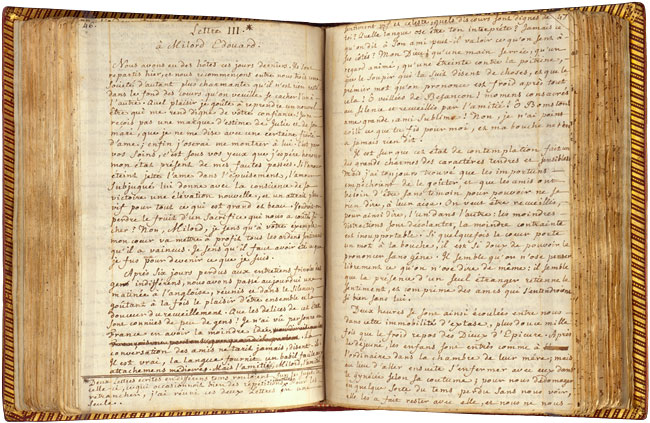 46.
Lettre III.*
à Milord Edouard.
Nous avons eu des hôtes ces jours derniers. Ils sont
repartis hier, et nous recommençons entre nous trois une
société d'autant plus charmante qu'il n'est rien resté
dans le fond des cœurs qu'on veuille se cacher l'un à
l'autre. Quel plaisir je goûte à reprendre un nouvel
être qui me rend digne de vôtre confiance! Je ne
reçois pas une marque d'estime de Julie et de son
mari, que je ne me dise avec une certaine fierté
d'ame; enfin j'oserai me montrer à lui. C'est par
vos soins, c'est sous vos yeux que j'espére honorer
mon état présent de mes fautes passées. Si l'amour
éteint jette l'ame dans l'épuisement, l'amour
subjugué lui donne avec la conscience de sa
victoire une élévation nouvelle, et un attrait plus
vif pour tout ce qui est grand et beau. Voudroit-on
perdre le fruit d'un sacrifice qui nous a coûté si
cher? Non, Milord, je sens qu'à vôtre exemple
mon cœur va mettre à profit tous les ardens sentimens
qu'il a vaincus. Je sens qu'il faut avoir été ce que
je fus pour devenir ce que je suis.
Après six jours perdus aux entretiens frivoles des
gens indifférens, nous avons passé aujourdui une
matinée à l'angloise, réunis et dans le silence,
goûtant à la fois le plaisir d'être ensemble et la
douceur du recueillement. Que les délices de cet état
sont connües de peu de gens! Je n'ai vû personne en
France en avoir la moindre idée.
conversation des amis ne tarit jamais, disent-ils.
Il est vrai, la langue fournit un babil facile aux
attachemens médiocres. Mais l'amitié, Milord, l'amitié!
Deux Lettres écrites en différens tems
celle-ci, ce qui occasionoit bien des répétitions
retrancher, j'ai réuni ces deux Lettres en une
seule.
47
sentiment vif et céleste, quels discours sont dignes de
toi? Quelle langue ose être ton interprète? Jamais ce
qu'on dit à son ami peut-il valoir ce qu'on sent à
ses côtés? Mon Dieu! qu'une main serrée, qu'un
regard animé, qu'une étreinte contre la poitrine,
que le soupir qui la suit disent de choses, et que le
premier mot qu'on prononce est froid après tout
cela! O veillées de Besançon! momens consacrés
au silence et recueillis par l'amitié! O Bomston!
ame grande, ami sublime! Non, je n'ai point
avili ce que tu fis pour moi, et ma bouche ne t'en
a jamais rien dit.
Il est sûr que cet état de contemplation fait un
des grands charmes des caractéres tendres et sensibles
Mais j'ai toujours trouvé que les importuns
empéchoient de le goûter, et que les amis ont
besoin d'être sans témoin pour pouvoir ne se
rien dire, à leur aise. On veut être recueillis,
pour ainsi dire, l'un dans l'autre: les moindres
distractions sont désolantes, la moindre contrainte
est insuportable. Si quelquefois le cœur porte
un mot à la bouche, il est si doux de pouvoir le
prononcer sans gêne! Il semble qu'on n'ose penser
librement ce qu'on n'ose dire de même: il semble
que la présence d'un seul étranger retienne le
sentiment, et comprime des ames qui s'entendroient
si bien sans lui.
Deux heures se sont ainsi écoulées entre nous
dans cette immobilité d'extase, plus douce mille
fois que le froid repos des Dieux d'Epicure. Après
le déjeuné, les enfans sont entrés comme à
l'ordinaire dans la chambre de leur mére; mais
au lieu d'aller ensuite s'enfermer avec eux dans
le gynécée selon sa coutume; pour nous dédomager
en quelque sorte du tems perdu sans nous voir,
elle les a fait rester avec elle, et nous ne nous